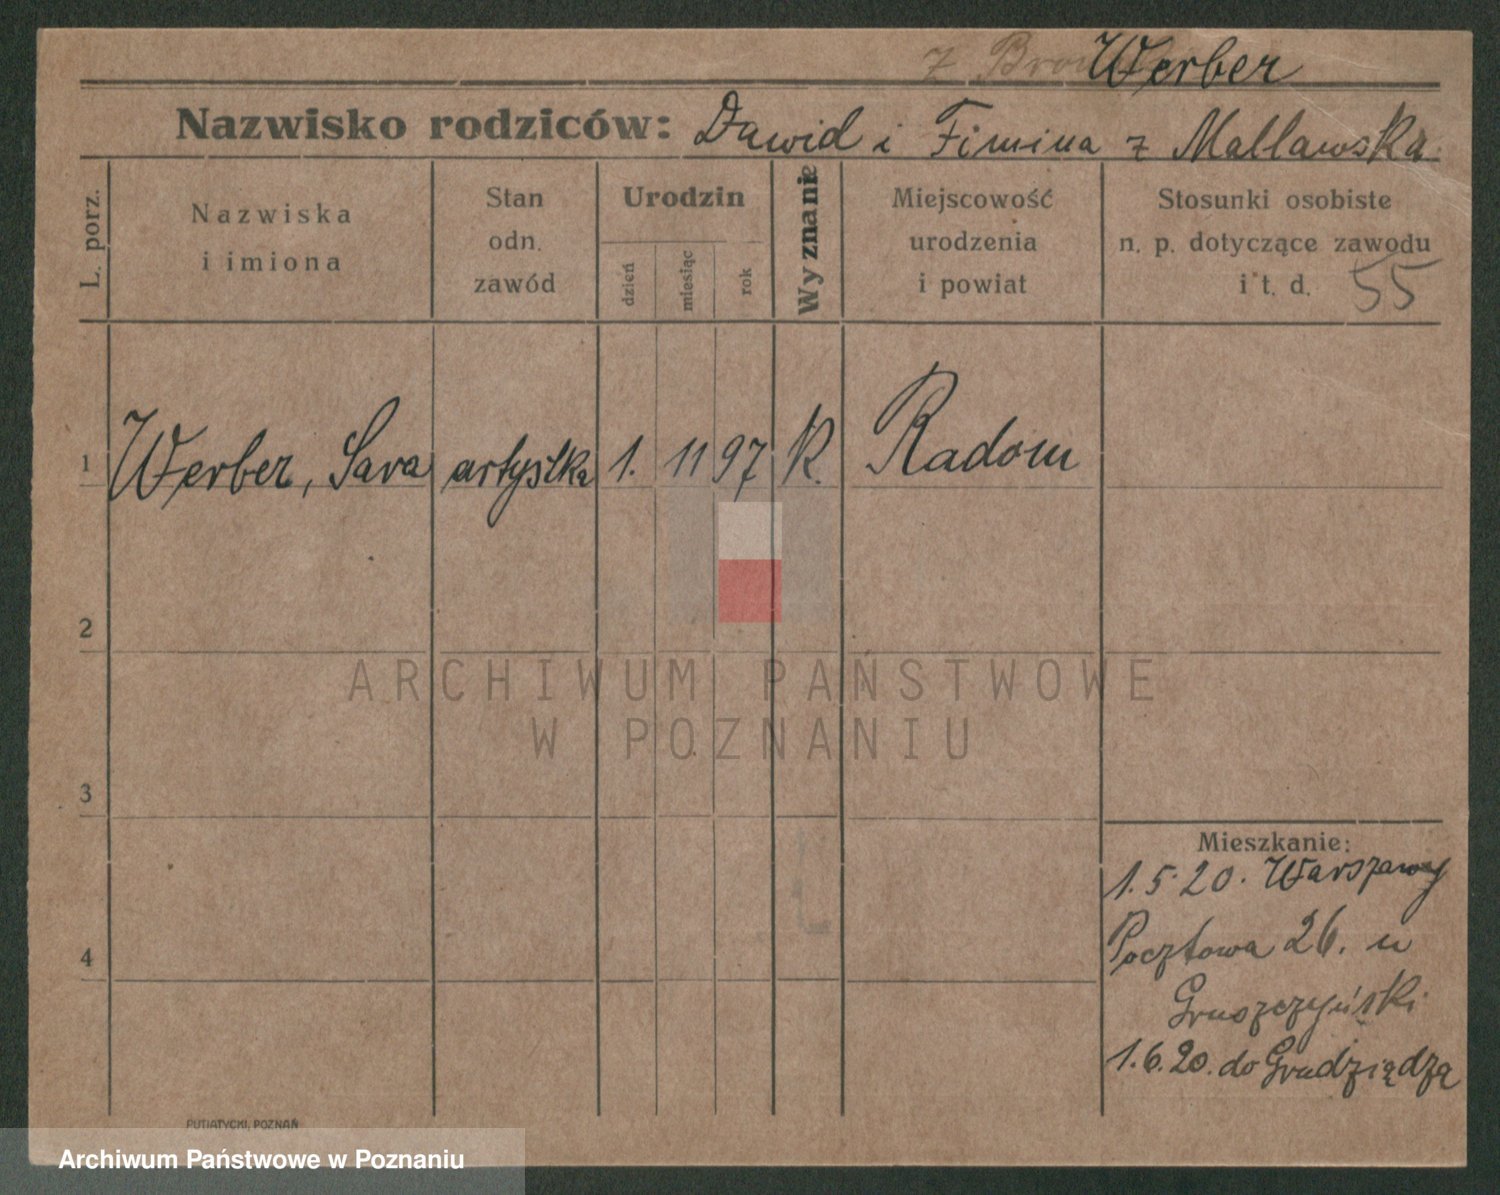 z Werber
Nazwisko rodziców: Dawid i Fimina z Mallawska
L. porz.
Nazwiska
i imiona
Stan
odn.
zawód
Urodzin
dzień
miesiąc
rok
Wyznanie
Miejscowość
urodzenia
i powiat
Stosunki osobiste
n. p. dotyczące zawodu
i t. d. 55
1 Werber, Sara artystka 1. 11 97 K. Radom
2
ARCHIWUM PAŃSTWOWE
W POZNANIU
3
Mieszkanie:
1.5.20. Warszawy
Pocztowa 26. u
4
Gruszczyński
1.6.20. do Grudziądza
PUTIATYCKI, POZNAŃ
Archiwum Państwowe w Poznaniu